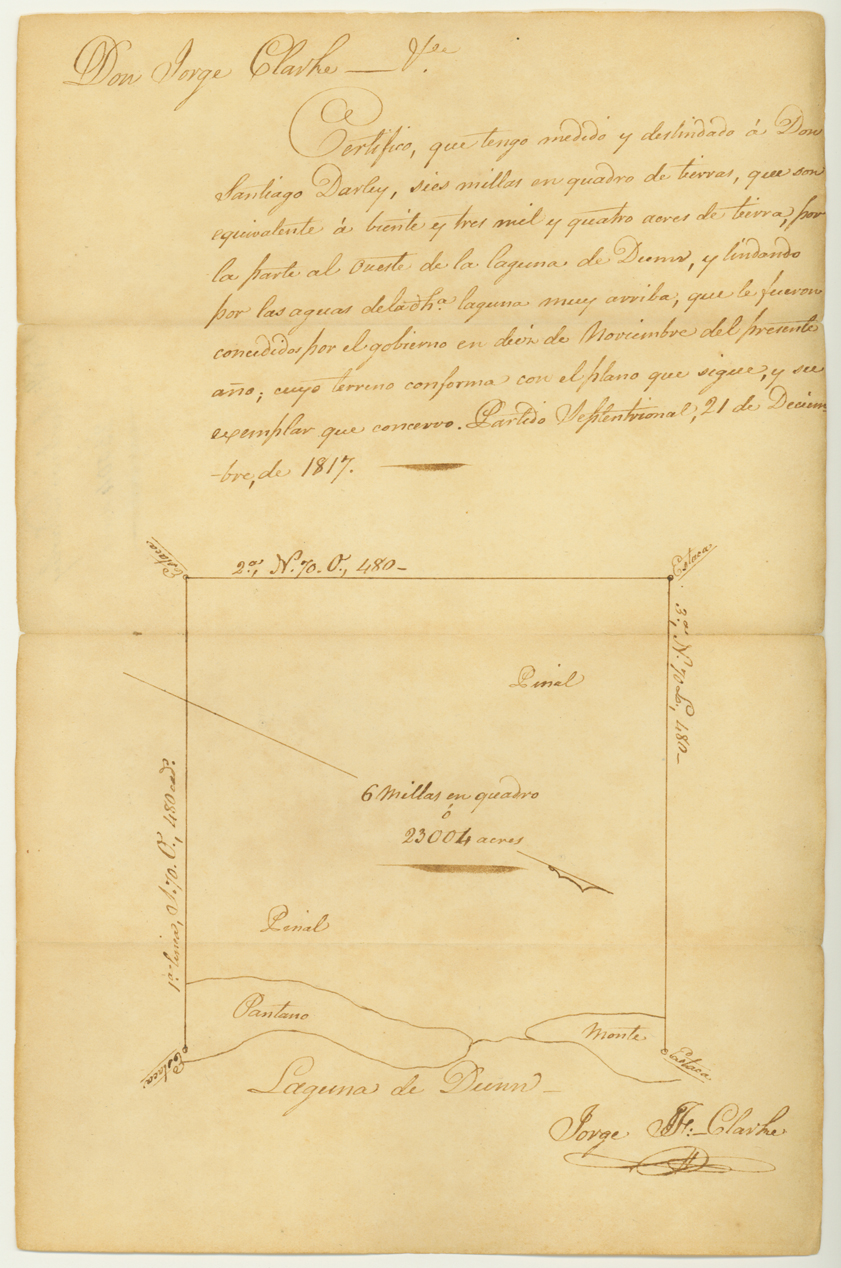 Don Jorge Clarke — Vea.
Certifico, que tengo medido y deslindado á Don
Santiago Darley, sies millas en quadro de tierras, que son
equivalente á biente y tres mil y quatro acres de tierra, por
la parte al Oueste de la laguna de Dunn, y lindando
por las aguas de la dha. laguna muy arriba, que le fueron
concedidos por el gobierno en de Noviembre del presente
año; cuyo terreno conforma con el plano que sigue, y su
exemplar que concervo. Partido Septentrional, 21 de Deciem-
-bre, de 1817.
Estaca
2a., N. 70. O., 480-
Estaca
3a., N. 70 E., 480-
Pinal
6 Millas en quadro
ó
23004 acres
1a. linea, S. 70. O., 480 cads.
Pinal
Pantano
Monte
Estaca
Estaca
Laguna de Dunn-
Jorge J. F. Clarke